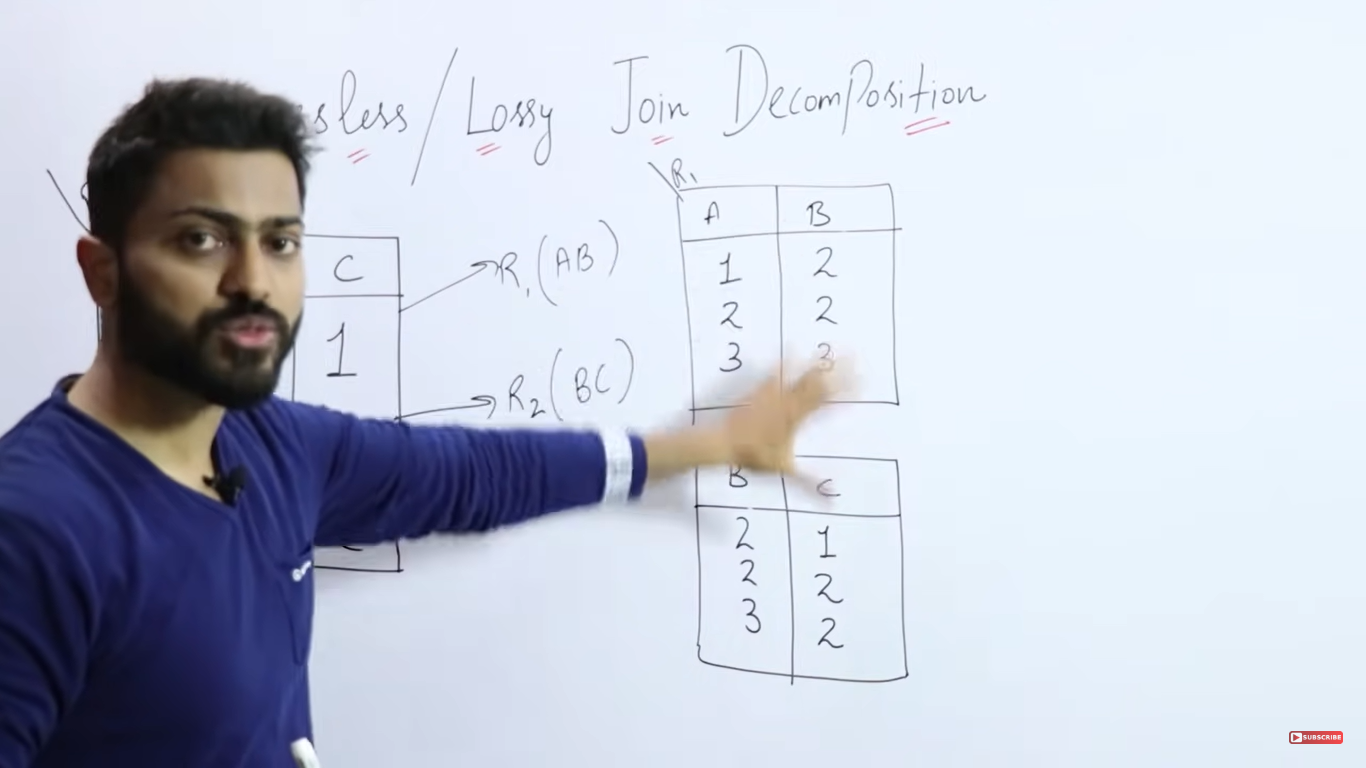 sless / Lossy Join Decomposition
C
1
R₁(AB)
R₂(BC)
R₁
A B
1 2
2 2
3 3
B C
2 1
2 2
3 2
SUBSCRIBE